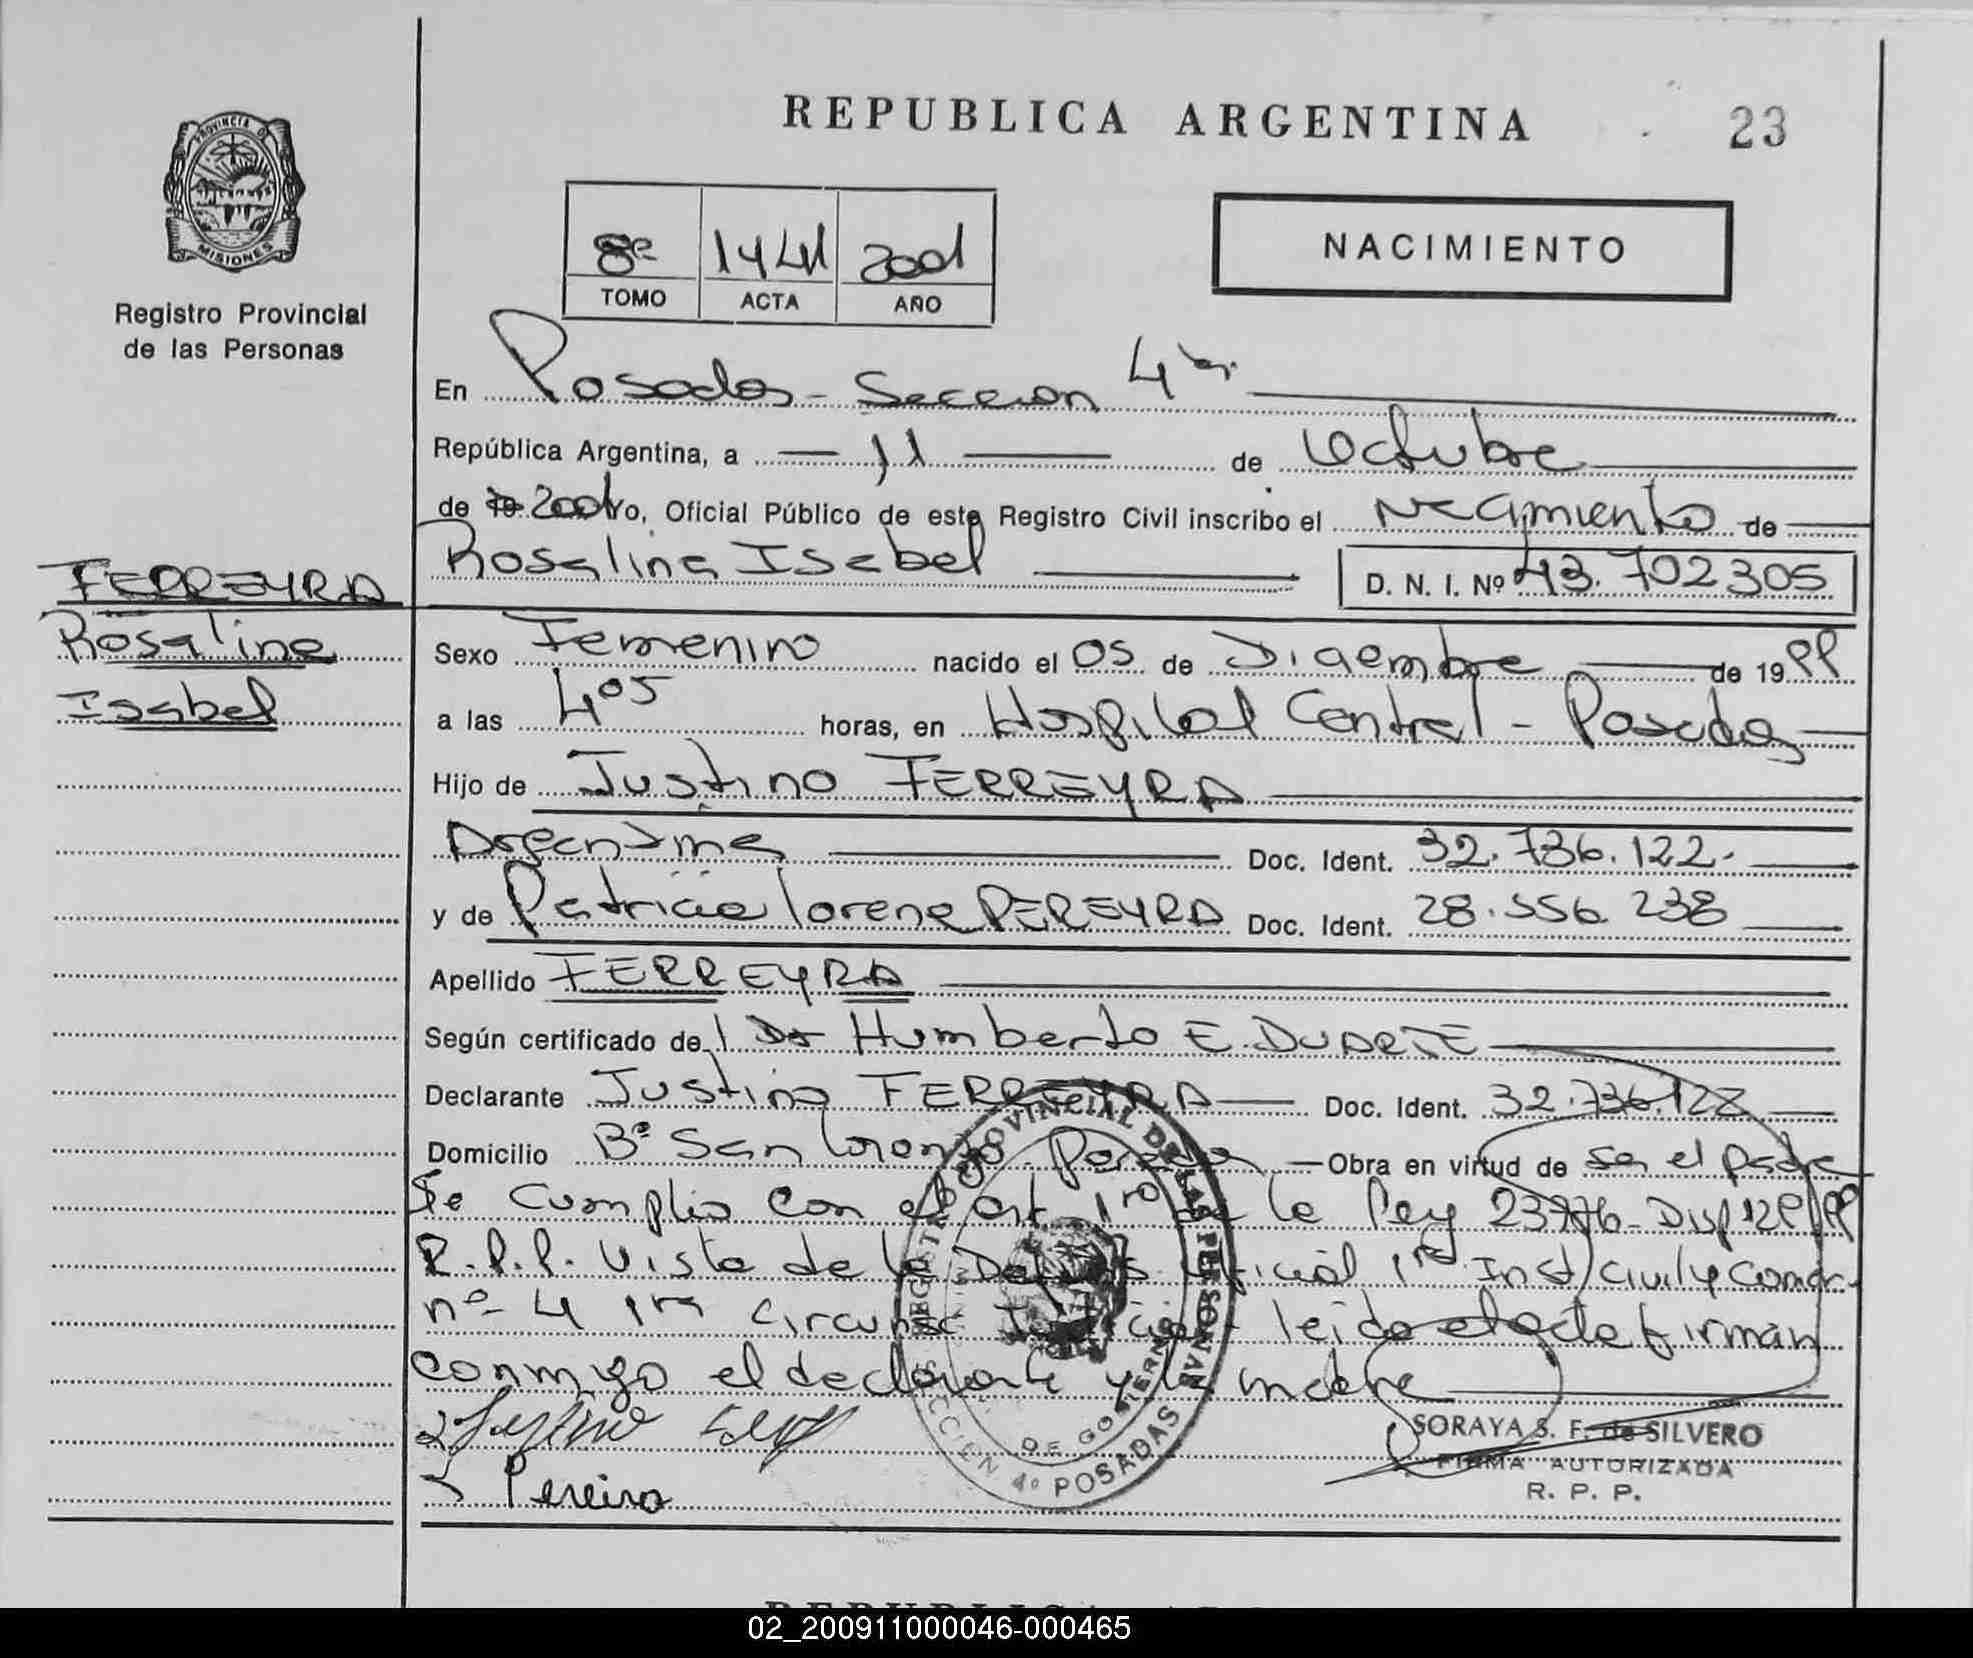 REPUBLICA ARGENTINA
23
PROVINCIA DE
MISIONES
Registro Provincial
de las Personas
8º 1441 2001
TOMO ACTA AÑO
NACIMIENTO
En Posadas - Seccion 4ta
República Argentina, a 11 de Octubre
de 19 2001 yo, Oficial Público de este Registro Civil inscribo el Nacimiento de
Rosalina Isabel D. N. I. Nº 43.702305
FERREYRA
Rosalina
Isabel
Sexo Femenino nacido el 05 de Diciembre de 1999
a las 4º5 horas, en Hospital Central - Posadas
Hijo de Justino FERREYRA
Argentina Doc. Ident. 32.736.122.
y de Patricia Lorena PEREYRA Doc. Ident. 28.556.238
Apellido FERREYRA
Según certificado del Dr Humberto E. DUARTE
Declarante Justino FERREYRA Doc. Ident. 32.736.122
Domicilio Bº San Lorenzo Posadas Obra en virtud de ser el padre
Se Cumplio con el art 1ro de la Ley Disp 129/99
R.P.P. Vista de la Oficial 1ra Inst/Civil y Comer.
nº 4 1ra Circunsc Judicial leido el acta firman
conmigo el declarante y la madre
Justino
Pereira
REGISTRO PROVINCIAL DE LAS PERSONAS
DE GOBIERNO
SECCION 4º POSADAS
SORAYA S. F. de SILVERO
FIRMA AUTORIZADA
R. P. P.
02_200911000046-000465